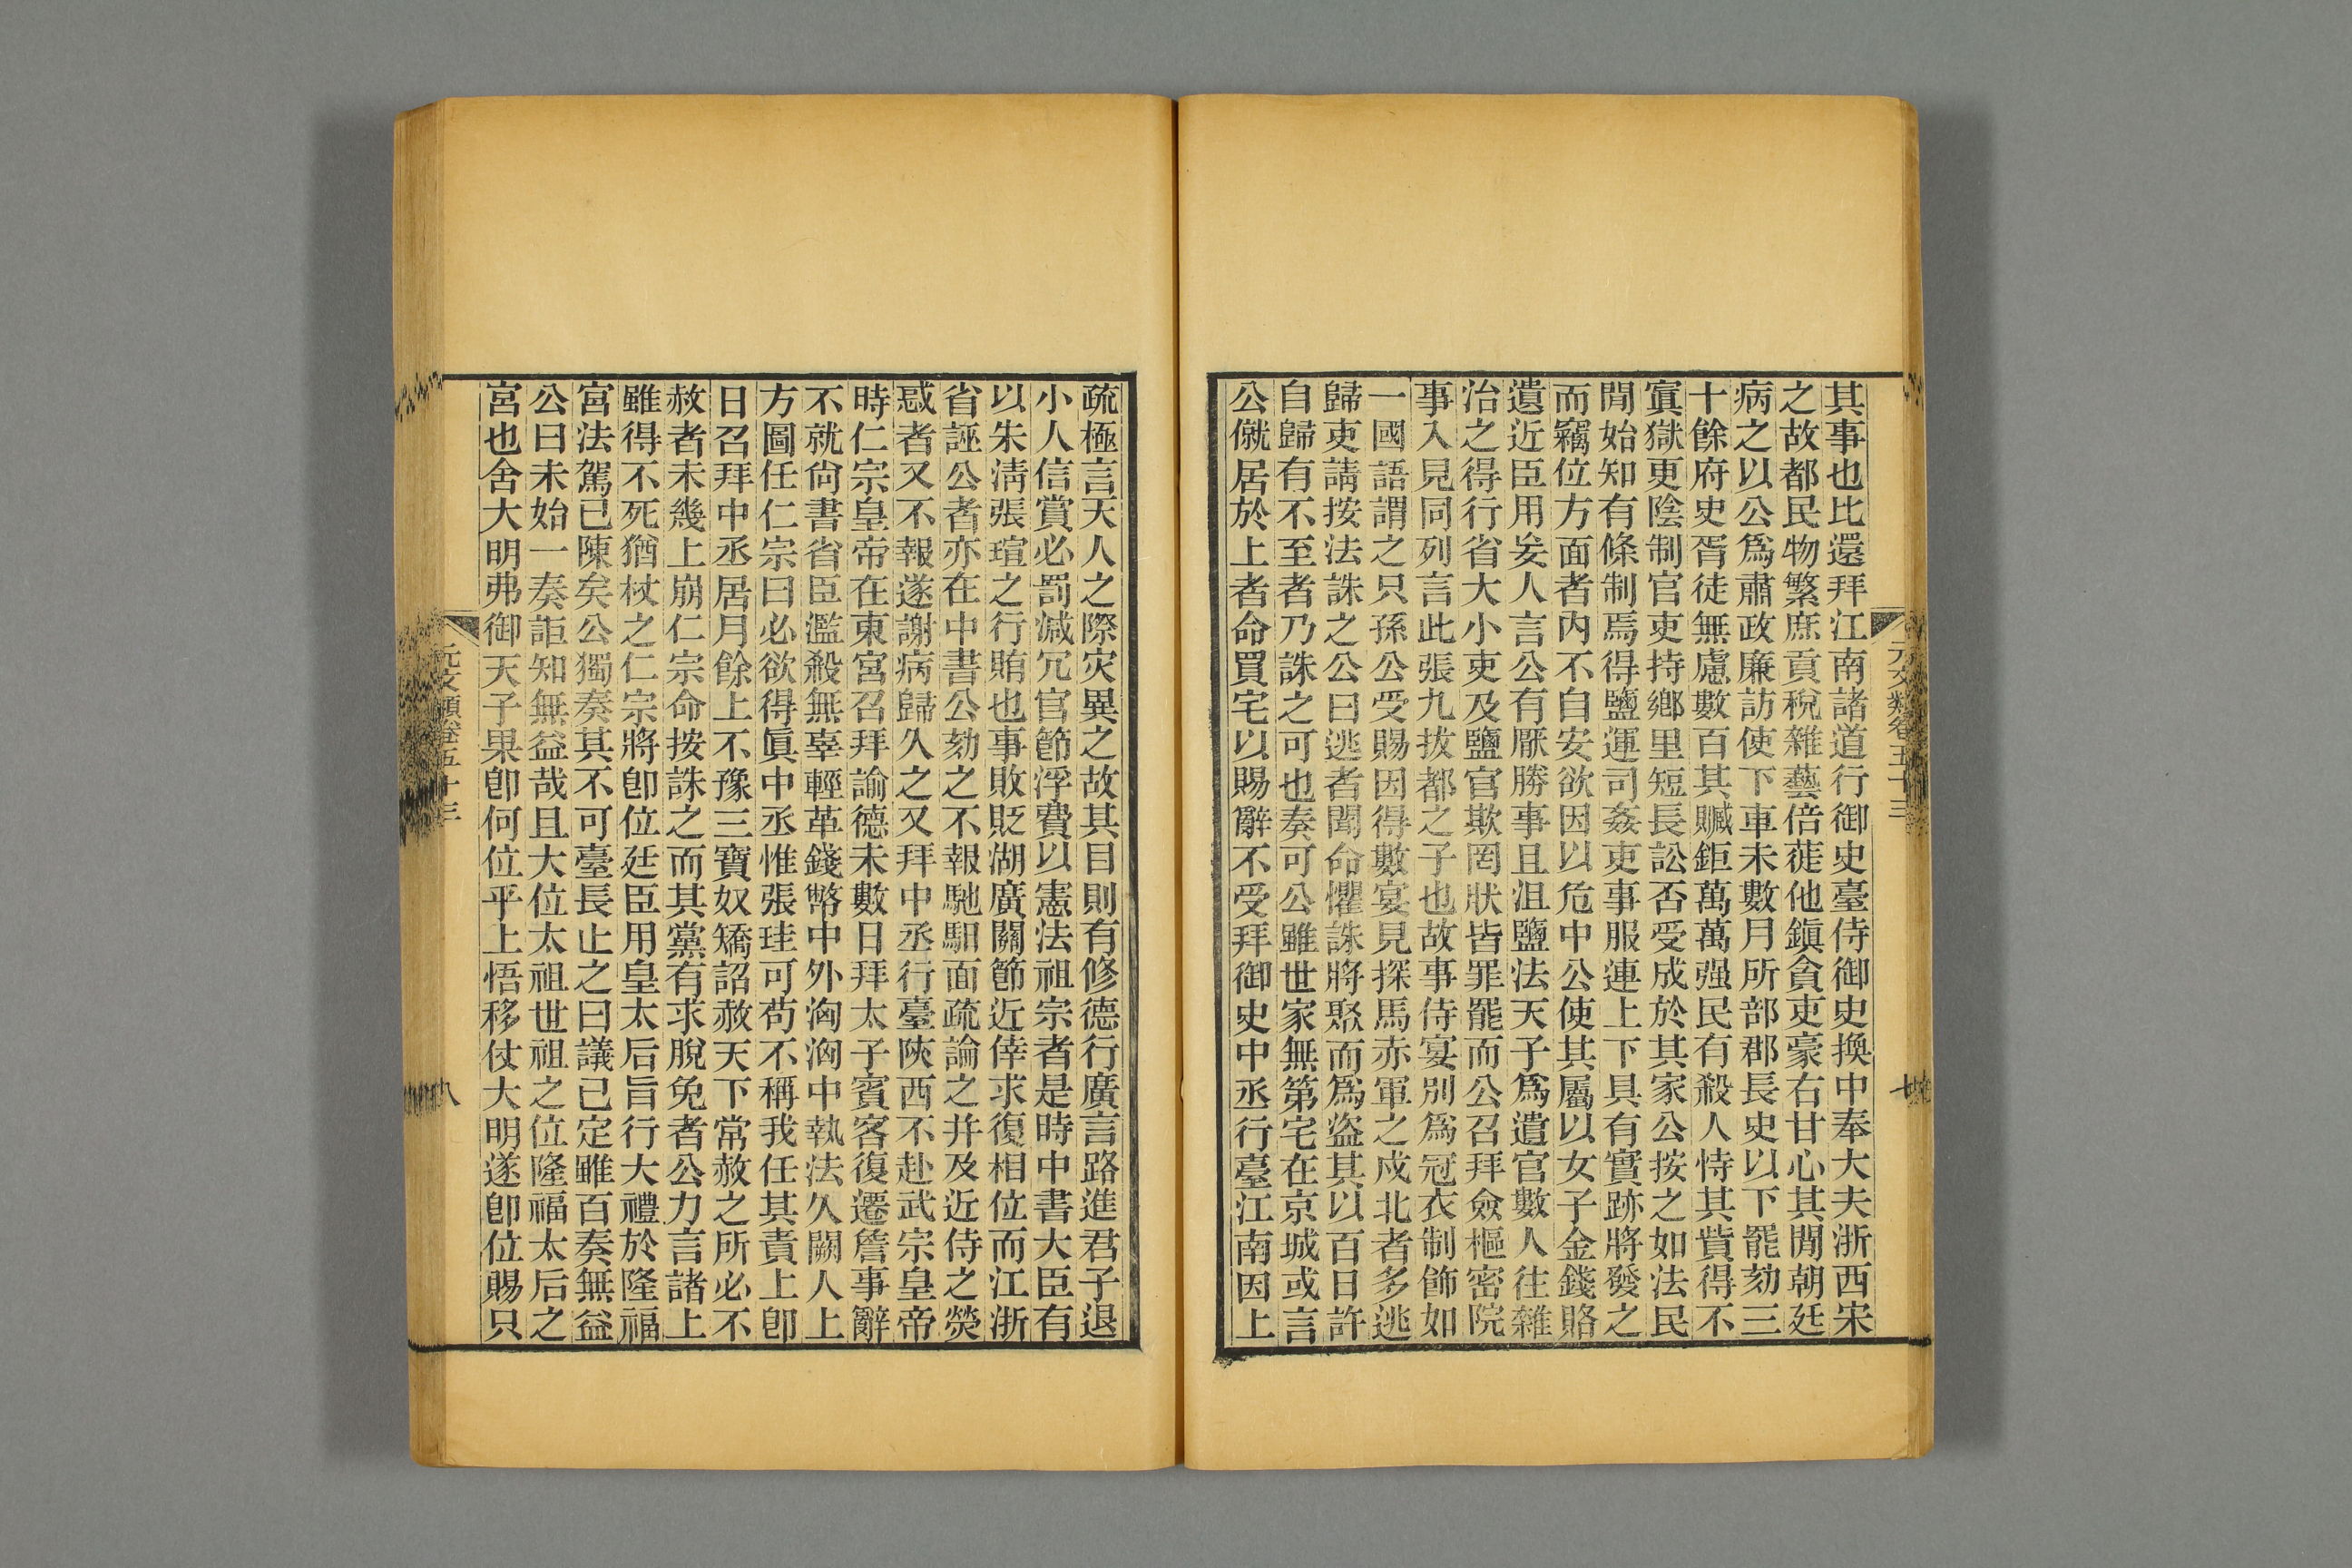 元文類卷五十三
七
其事也比還拜江南諸道行御史臺侍御史換中奉大夫浙西宋
之故都民物繁庶貢稅雜藝倍蓰他鎮貪吏豪右甘心其閒朝廷
病之以公爲肅政廉訪使下車未數月所部郡長史以下罷劾三
十餘府史胥徒無慮數百其贓鉅萬萬强民有殺人恃其貲得不
寘獄更陰制官吏持鄉里短長訟否受成於其家公按之如法民
閒始知有條制焉得鹽運司姦吏事服連上下具有實跡將發之
而竊位方面者內不自安欲因以危中公使其屬以女子金錢賂
遺近臣用妄人言公有厭勝事且沮鹽法天子爲遣官數人往雜
治之得行省大小吏及鹽官欺罔狀皆罪罷而公召拜僉樞密院
事入見同列言此張九拔都之子也故事侍宴別爲冠衣制飾如
一國語謂之只孫公受賜因得數宴見探馬赤軍之戍北者多逃
歸吏請按法誅之公曰逃者聞命懼誅將聚而爲盜其以百日許
自歸有不至者乃誅之可也奏可公雖世家無第宅在京城或言
公僦居於上者命買宅以賜辭不受拜御史中丞行臺江南因上
疏極言天人之際灾異之故其目則有修德行廣言路進君子退
小人信賞必罰減冗官節浮費以憲法祖宗者是時中書大臣有
以朱淸張瑄之行賄也事敗貶湖廣關節近倖求復相位而江浙
省誣公者亦在中書公劾之不報馳馹面疏論之并及近侍之熒
惑者又不報遂謝病歸久之又拜中丞行臺陝西不赴武宗皇帝
時仁宗皇帝在東宮召拜諭德未數日拜太子賓客復遷詹事辭
不就尙書省臣濫殺無辜輕革錢幣中外洶洶中執法久闕人上
方圖任仁宗曰必欲得眞中丞惟張珪可苟不稱我任其責上卽
日召拜中丞居月餘上不豫三寶奴矯詔赦天下常赦之所必不
赦者未幾上崩仁宗命按誅之而其黨有求脫免者公力言諸上
雖得不死猶杖之仁宗將卽位廷臣用皇太后旨行大禮於隆福
宮法駕已陳矣公獨奏其不可臺長止之曰議已定雖百奏無益
公曰未始一奏詎知無益哉且大位太祖世祖之位隆福太后之
宮也舍大明弗御天子果卽何位乎上悟移仗大明遂卽位賜只
元文類卷五十三
八